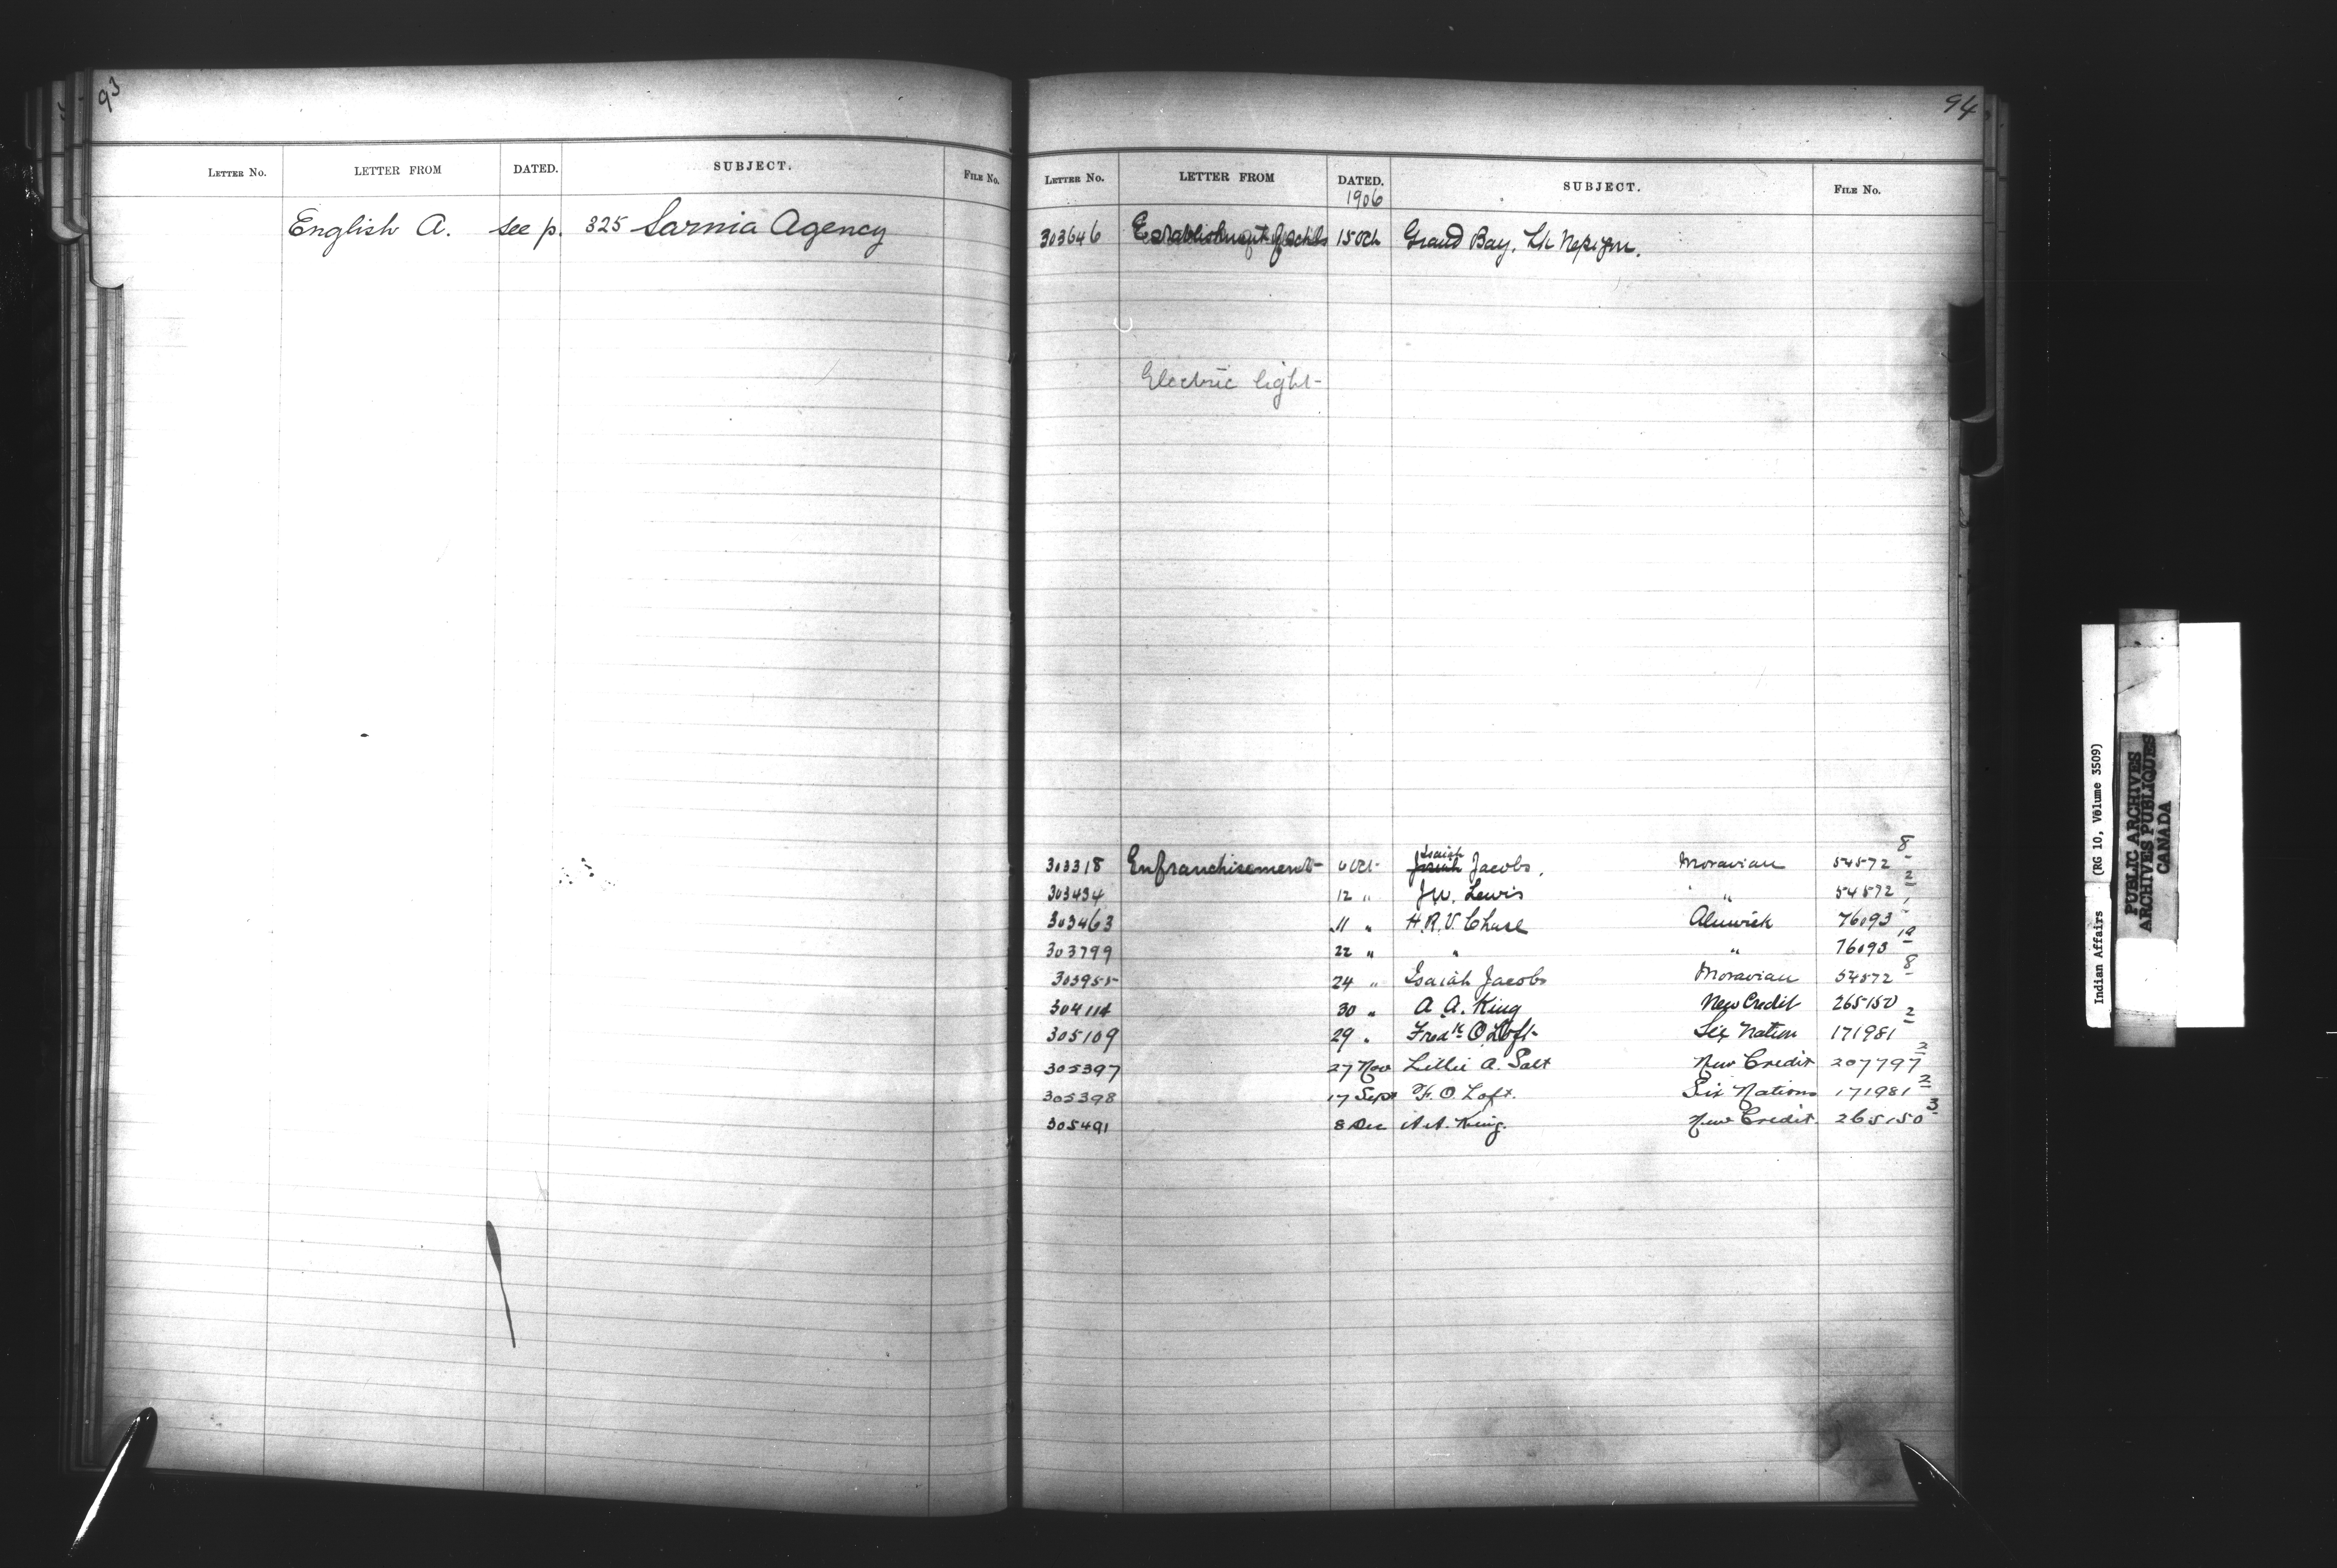 93
LETTER NO. LETTER FROM DATED. SUBJECT. FILE NO.
English A. see p. 325 Sarnia Agency
94
LETTER NO. LETTER FROM DATED. SUBJECT. FILE NO.
1906
303646 Establishment of Schls 15 Oct Grand Bay, Lk Nepigon.
Electric light
303318 Enfranchisement 6 Oct Isaiah Jacobs, Moravian 54572 8
303434 12 " J.W. Lewis " 54572 2
303463 11 " H.R.V. Chase Alnwick 76093
303799 22 " " " 76093 1a
303955 24 " Isaiah Jacobs Moravian 54572 8
304114 30 " A. A. King New Credit 265150
305109 29 " Fredk O. Loft Six Nation 171981 2
305397 27 Nov Lillie A. Salt New Credit 207797 2
305398 17 Sept F. O. Loft. Six Nations 171981 2
305491 8 Dec A.A. King. New Credit 265150 3
Indian Affairs (RG 10, Volume 3509)
PUBLIC ARCHIVES
ARCHIVES PUBLIQUES
CANADA